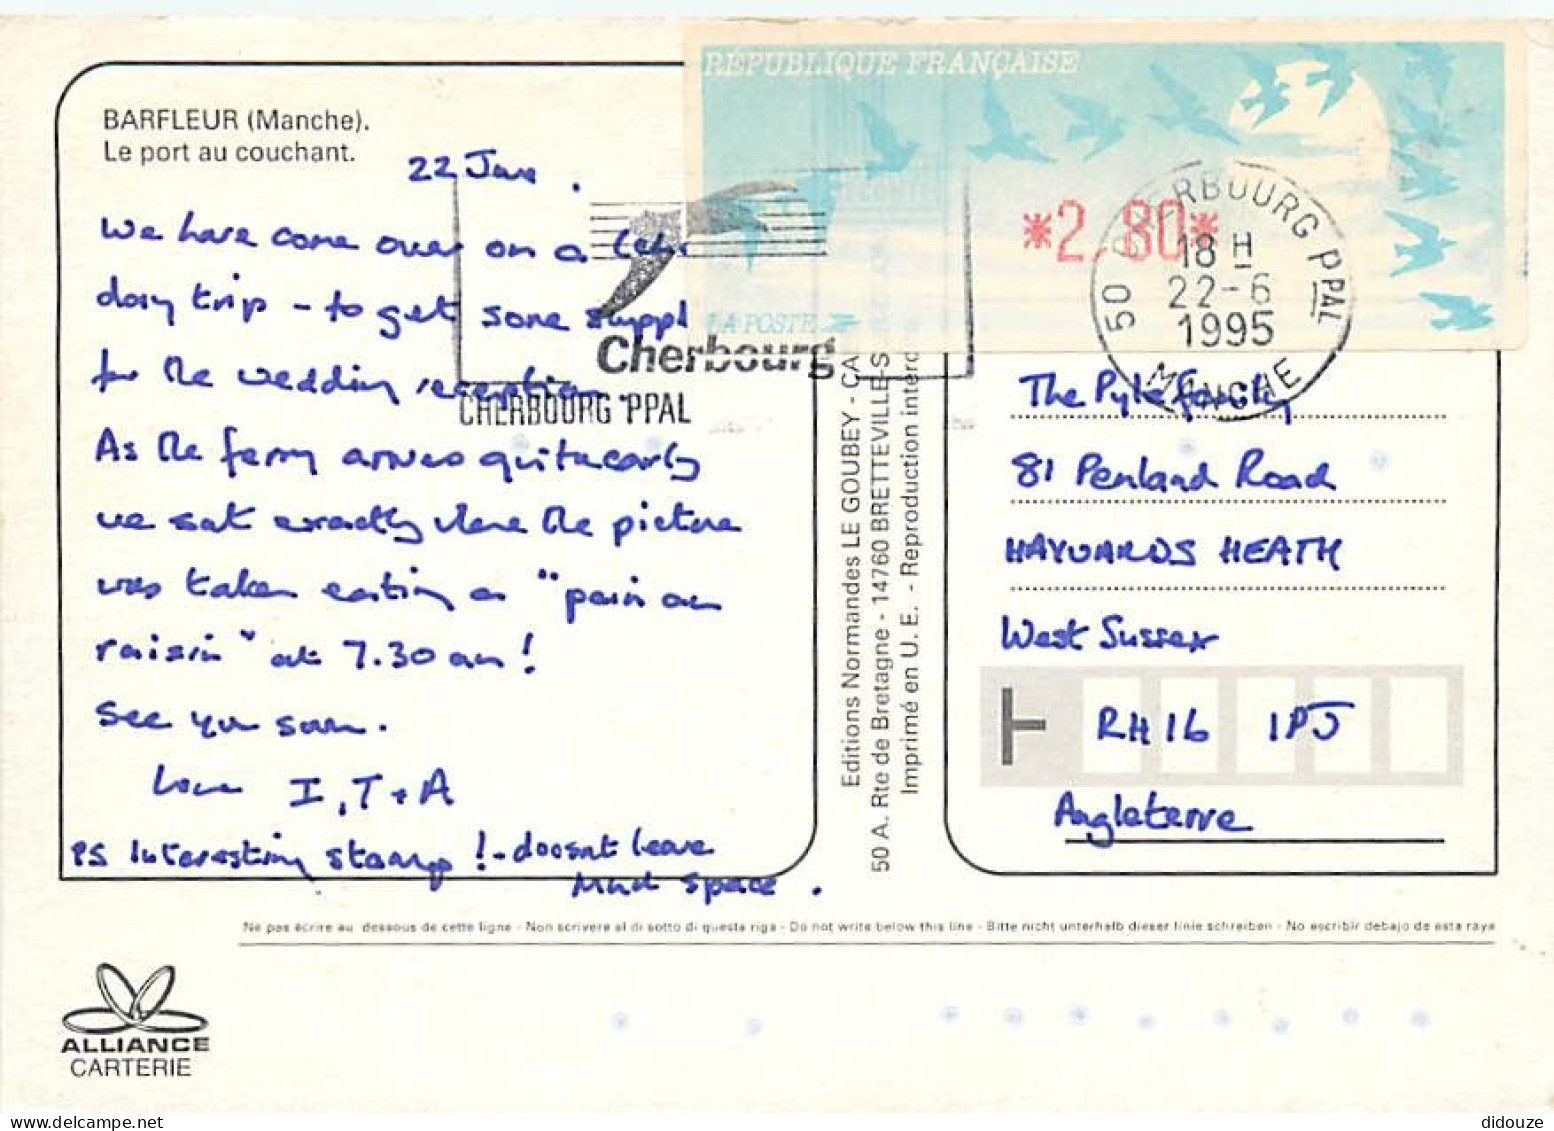 BARFLEUR (Manche).
Le port au couchant.
22 June.
We have come over on a
day trip - to get some suppl
for the wedding reception.
As the ferry arrives quite early
we sat exactly where the picture
was taken eating a "pain au
raisin" at 7.30 am!
See you soon.
Love I, T + A
PS Interesting stamp! - doesn't leave
much space.
RÉPUBLIQUE FRANÇAISE
*2,80*
LA POSTE
Cherbourg
CHERBOURG PPAL
50 CHERBOURG PPAL
18 H
22-6
1995
MANCHE
Editions Normandes LE GOUBEY - CA
50 A. Rte de Bretagne - 14760 BRETTEVILLE-S
Imprimé en U. E. - Reproduction interd
The Pyke family
81 Penland Road
HAYWARDS HEATH
West Sussex
RH16 1PJ
Angleterre
Ne pas écrire au dessous de cette ligne - Non scrivere al di sotto di questa riga - Do not write below this line - Bitte nicht unterhalb dieser linie schreiben - No escribir debajo de esta raya
ALLIANCE
CARTERIE
didouze